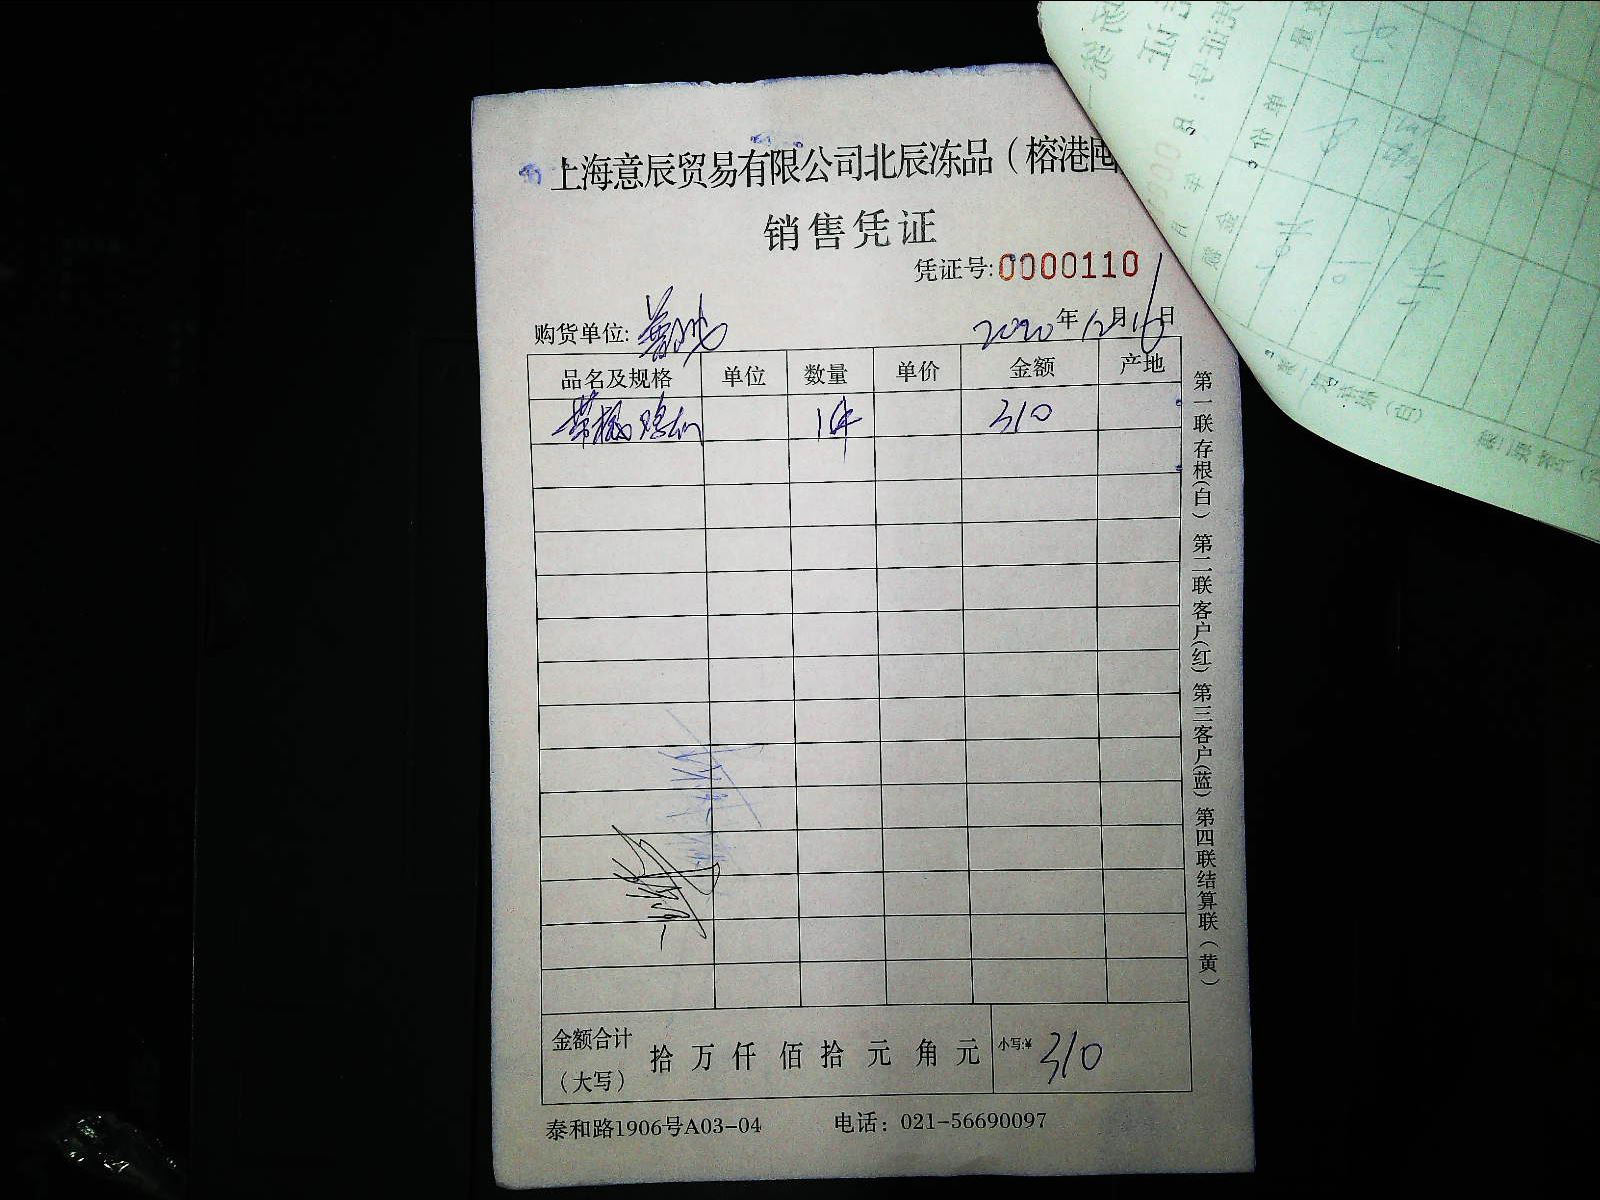 上海意辰贸易有限公司北辰冻品（榕港
销售凭证
凭证号:0000110
购货单位:
2020年12月16日
品名及规格 单位 数量 单价 金额 产地
1件 310
第一联存根(白) 第二联客户(红) 第三客户(蓝) 第四联结算联（黄）
金额合计（大写） 拾 万 仟 佰 拾 元 角 元 小写:¥ 310
泰和路1906号A03-04 电话：021-56690097